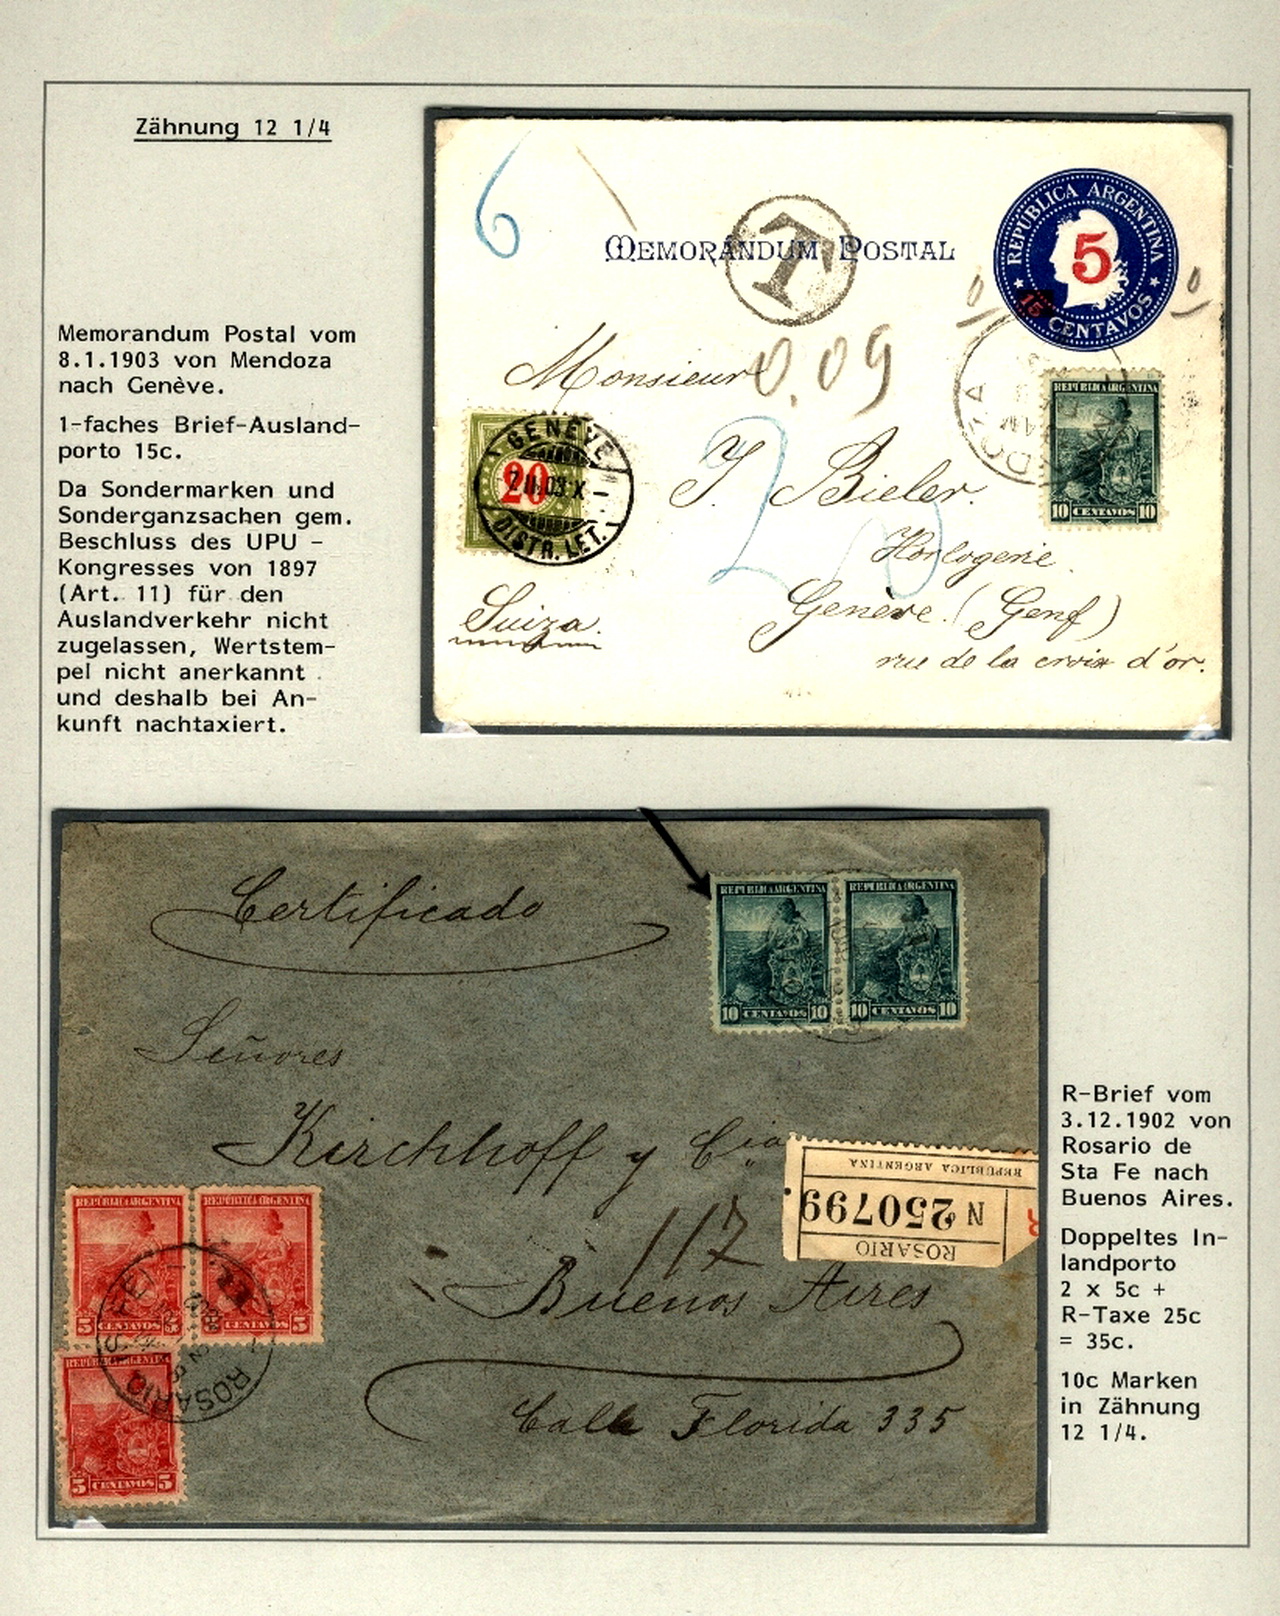 Zähnung 12 1/4
Memorandum Postal vom
8.1.1903 von Mendoza
nach Genève.
1-faches Brief-Ausland-
porto 15c.
Da Sondermarken und
Sonderganzsachen gem.
Beschluss des UPU -
Kongresses von 1897
(Art. 11) für den
Auslandverkehr nicht
zugelassen, Wertstem-
pel nicht anerkannt
und deshalb bei An-
kunft nachtaxiert.
6
MEMORÁNDUM POSTAL
T
REPÚBLICA ARGENTINA
5
15
CENTAVOS
0 0
0.09
Monsieur
REPUBLICA ARGENTINA
10 CENTAVOS 10
GENÈVE
20
DISTR. LET.
20
J. Bieler.
Horlogerie
Genève. (Genf)
Suiza.
rue de la croix d'or.
Certificado
REPUBLICA ARGENTINA
10 CENTAVOS 10
REPUBLICA ARGENTINA
10 CENTAVOS 10
Señores
Kirchhoff y Cia
REPUBLICA ARGENTINA
N 250799
ROSARIO
R
117
Buenos Aires
Calle Florida 335
REPUBLICA ARGENTINA
5 CENTAVOS 5
REPUBLICA ARGENTINA
5 CENTAVOS 5
REPUBLICA ARGENTINA
5 CENTAVOS 5
ROSARIO
R-Brief vom
3.12.1902 von
Rosario de
Sta Fe nach
Buenos Aires.
Doppeltes In-
landporto
2 x 5c +
R-Taxe 25c
= 35c.
10c Marken
in Zähnung
12 1/4.